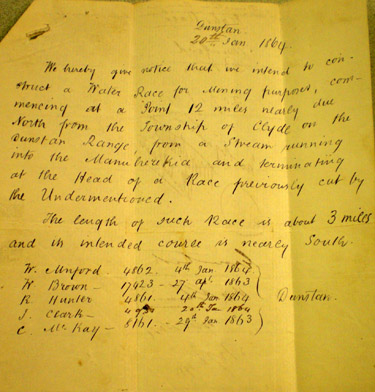 Dunstan
20th Jan. 1864.
We hereby give notice that we intend to con-
struct a Water Race for Mining purposes, com-
mencing at a Point 12 miles nearly due
North from the Township of Clyde on the
Dunstan Range, from a Stream running
into the Manuherekid and terminating
at the Head of a Race previously cut by
the Undermentioned.
The length of such Race is about 3 miles
and in intended course is nearly South.
W. Mnford. 4862. 4th Jan 1864
W Brown - 17423 - 27 apl. 1863
R Hunter 4861. - 4th Jan 1864 Dunstan.
J. Clark - 20th Jan 1864
C. Mc Kay - 8161 - 29th Jan 1863